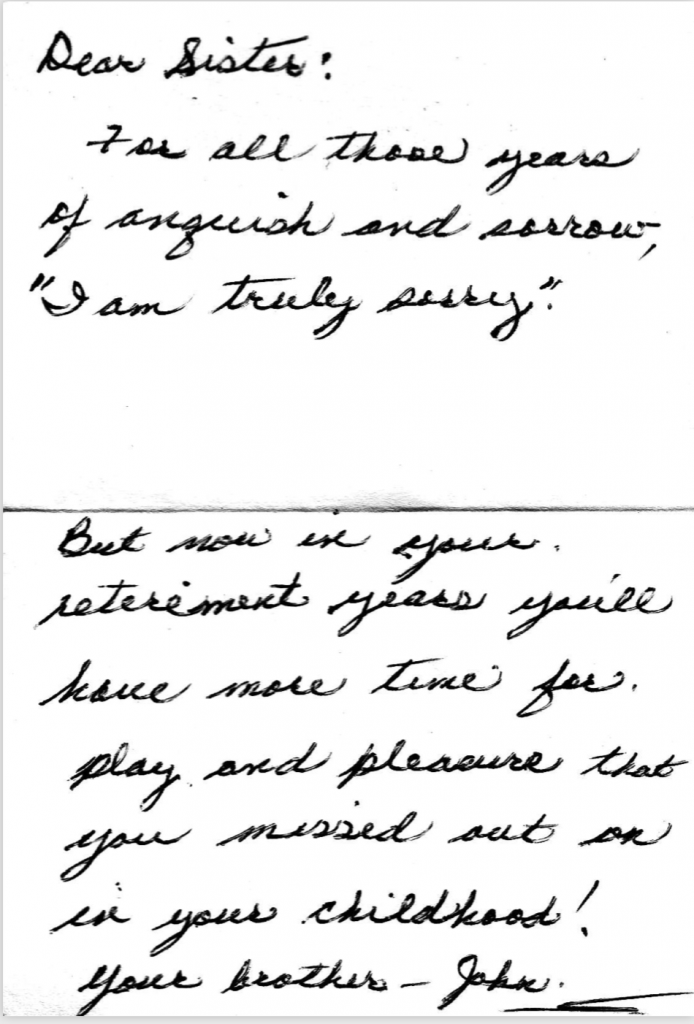 Dear Sister:
For all those years
of anguish and sorrow,
"I am truly sorry".
But now in your
retirement years you'll
have more time for
play and pleasure that
you missed out on
in your childhood!
Your brother – John.